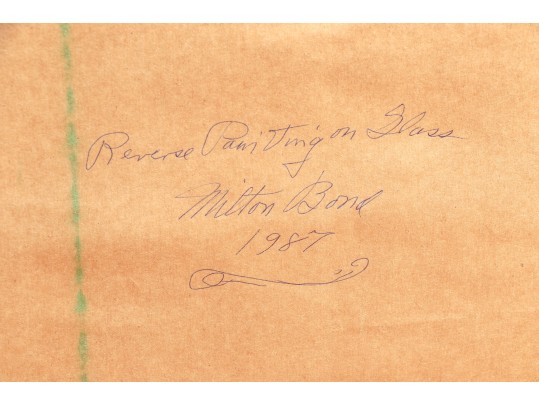 Reverse Painting on Glass
Milton Bond
1987